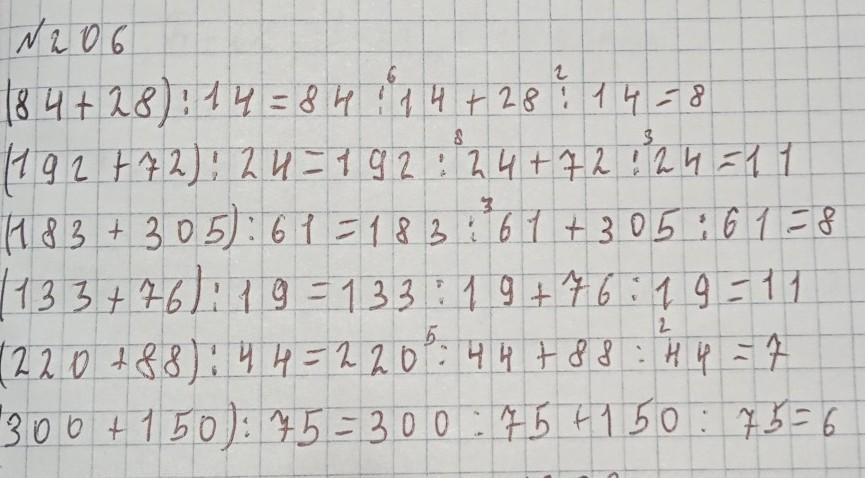 №206
(84+28):14=84:⁶14+28:²14=8
(192+72):24=192:⁸24+72:³24=11
(183+305):61=183:³61+305:61=8
(133+76):19=133:19+76:19=11
(220+88):44=220⁵:44+88:²44=7
(300+150):75=300:75+150:75=6